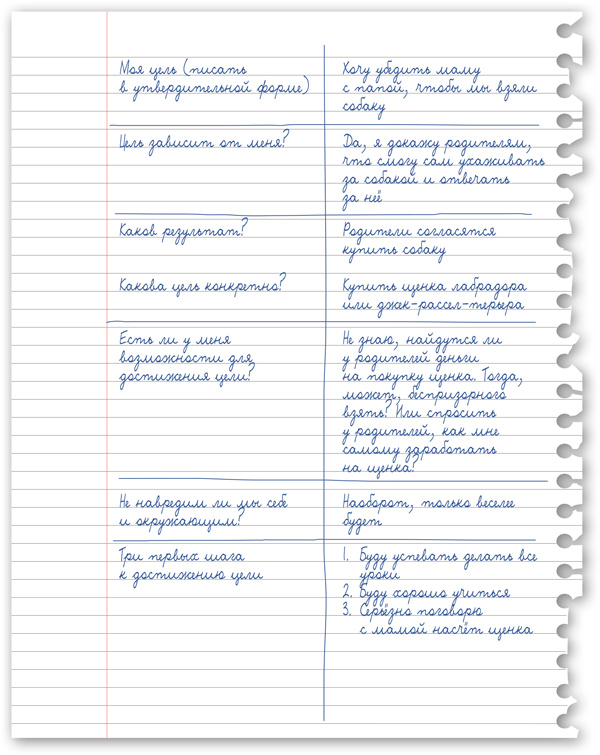 Моя цель (писать
в утвердительной форме)
Хочу убедить маму
с папой, чтобы мы взяли
собаку
Цель зависит от меня?
Да, я докажу родителям,
что смогу сам ухаживать
за собакой и отвечать
за неё
Каков результат?
Родители согласятся
купить собаку
Какова цель конкретно?
Купить щенка лабрадора
или джек-рассел-терьера
Есть ли у меня
возможности для
достижения цели?
Не знаю, найдутся ли
у родителей деньги
на покупку щенка. Тогда,
может, беспризорного
взять? Или спросить
у родителей, как мне
самому заработать
на щенка?
Не навредим ли мы себе
и окружающим?
Наоборот, только веселее
будет
Три первых шага
к достижению цели
1. Буду успевать делать все
уроки
2. Буду хорошо учиться
3. Серьёзно поговорю
с мамой насчёт щенка